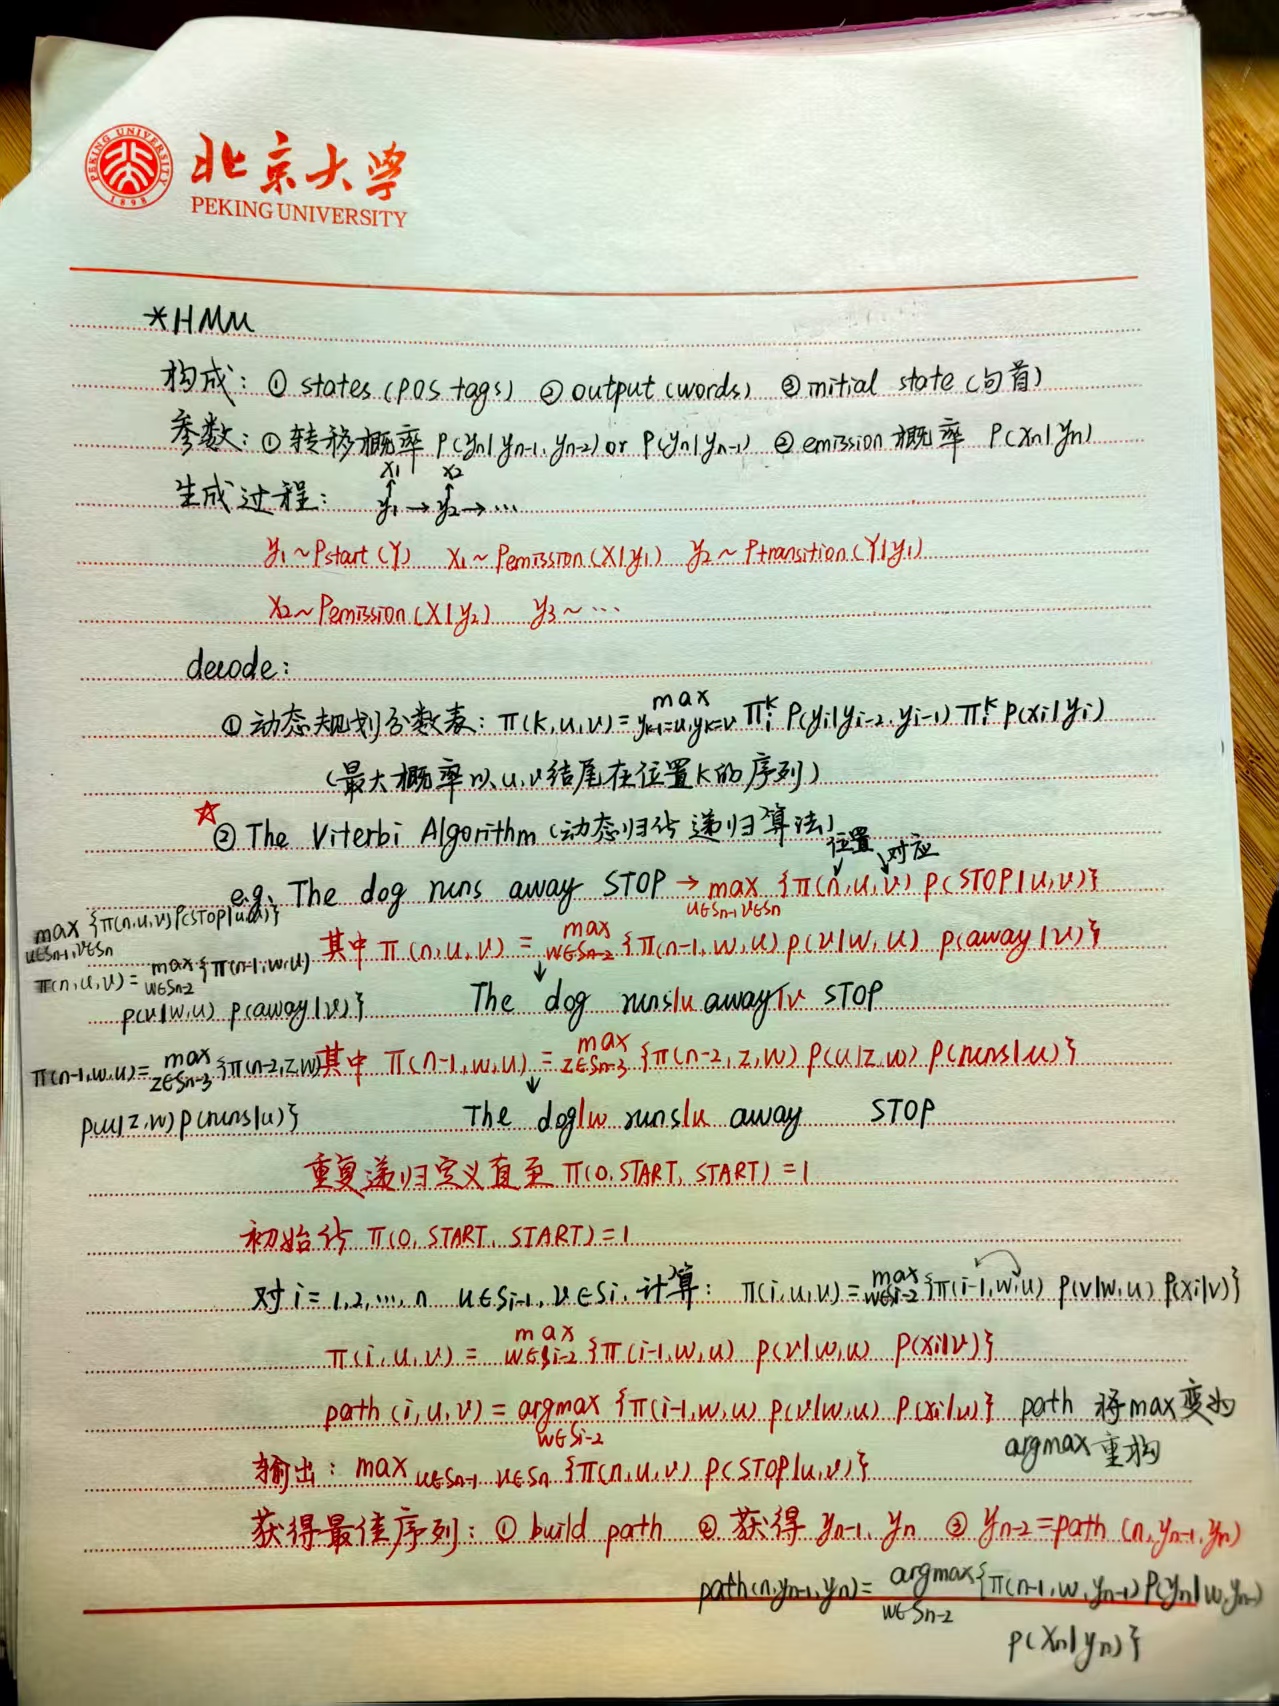 北京大学
PEKING UNIVERSITY
PEKING UNIVERSITY
1898
*HMM
构成: ① states (POS tags) ② output (words) ③ initial state (句首)
参数: ① 转移概率 P(yn|yn-1, yn-2) or P(yn|yn-1) ② emission 概率 P(xn|yn)
x1 x2
生成过程: y1 → y2 → ...
y1 ~ Pstart(Y) x1 ~ Pemission(X|y1) y2 ~ Ptransition(Y|y1)
x2 ~ Pemission(X|y2) y3 ~ ...
decode:
① 动态规划分数表: π(k,u,v) = max yk-1=u,yk=v Π_i^k P(yi|yi-2, yi-1) Π_i^k p(xi|yi)
(最大概率以u,v结尾在位置k的序列)
☆ ② The Viterbi Algorithm (动态归化 递归算法)
位置 对应
e.g. The dog runs away STOP → max u∈Sn-1 v∈Sn {π(n,u,v) P(STOP|u,v)}
max u∈Sn-1,v∈Sn {π(n,u,v) P(STOP|u,v)}
其中 π(n,u,v) = max w∈Sn-2 {π(n-1,w,u) p(v|w,u) p(away|v)}
π(n,u,v) = max w∈Sn-2 {π(n-1,w,u)
p(v|w,u) p(away|v)}
The dog runs|u away|v STOP
其中 π(n-1,w,u) = max z∈Sn-3 {π(n-2,z,w) p(u|z,w) P(runs|u)}
π(n-1,w,u) = max z∈Sn-3 {π(n-2,z,w)
p(u|z,w) p(runs|u)}
The dog|w runs|u away STOP
重复递归定义直至 π(0,START,START) = 1
初始化 π(0, START, START) = 1
对 i = 1,2,...,n u∈Si-1, v∈Si, 计算: π(i,u,v) = max w∈Si-2 {π(i-1,w,u) p(v|w,u) p(xi|v)}
π(i,u,v) = max w∈Si-2 {π(i-1,w,u) p(v|w,u) P(xi|v)}
path(i,u,v) = argmax w∈Si-2 {π(i-1,w,u) p(v|w,u) P(xi|u)} path 将max变为
argmax 重构
输出: max u∈Sn-1 v∈Sn {π(n,u,v) P(STOP|u,v)}
获得最佳序列: ① build path ② 获得 yn-1, yn ③ yn-2 = path (n,yn-1,yn)
path(n,yn-1,yn) = argmax w∈Sn-2 {π(n-1,w,yn-1) P(yn|w,yn-1)
p(xn|yn)}